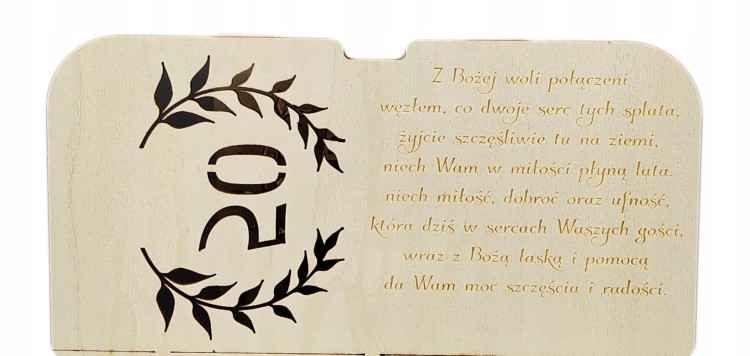 20
Z Bożej woli połączeni
węzłem, co dwoje serc tych splata,
żyjcie szczęśliwie tu na ziemi,
niech Wam w miłości płyną lata.
niech miłość, dobroć oraz ufność,
która dziś w sercach Waszych gości,
wraz z Bożą łaską i pomocą
da Wam moc szczęścia i radości.